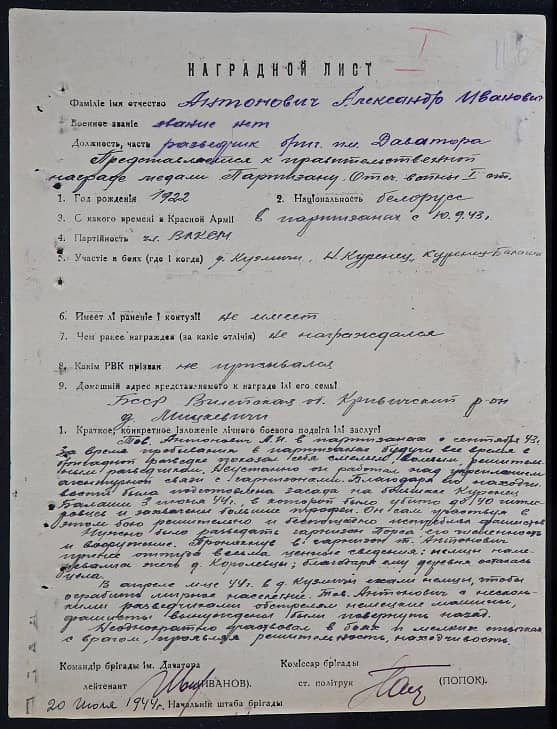 I
НАГРАДНОЙ ЛИСТ
Фаміліе імя отчество Антонович Александр Иванович
Военное званіе звание нет
Должность, часть разведчик бриг. им. Даватора
Представляется к правительственной
награде медали Партизану. Отеч. войны I ст.
1. Год рожденія 1922 2. Національность белорусс
3. С какого времені в Красной Арміі в партизанах с 10.9.43 г.
4. Партійность чл. ВЛКСМ
5. Участіе в боях (где і когда) д. Кузмичи, Н. Куренец, Куренец-Балаши
6. Имеет лі раненіе і контузіі не имеет
7. Чем ранее награжден (за какіе отлічія) не награждался
8. Какім РВК прізван не призывался
9. Домашній адрес представляемого к награде ілі его семьі
БССР Вилейская об. Кривичский р-он
д. Мицкевичи
1. Краткое, конкретное ізложеніе лічного боевого подвіга ілі заслуг
Тов. Антонович А.И. в партизанах с сентября 43 г.
За время пребывания в партизанах будучи все время в
разведке показал себя смелым, волевым, решитель
ным разведчиком. Неустанно он работал над укреплением
агентурной связи с гарнизонами. Благодаря его находчи
вости была подготовлена засада на большаке Куренец
Балаши 3 июня 44 г. в которой было убито до 140 гитле
ровцев и захвачены большие трофеи. Он сам участвуя в
этом бою решительно и беспощадно истреблял фашистов
Нужно было разведать гарнизон его численность
и вооружение. Проникнув в гарнизон т. Антонович
принес оттуда весьма ценные сведения: немцы наме
ревались жечь д. Королевцы; благодаря ему деревня осталась
цела.
В апреле м-це 44 г. в д. Кузмичи ехали немцы, чтобы
ограбить мирное население. Тов. Антонович с несколь
кими разведчиками обстрелял немецкие машины,
фашисты вынуждены были повернуть назад.
Неоднократно участвовал в боях и мелких стычках
с врагом, проявляя решительность, находчивость.
Командір брігады ім. Даватора Коміссар брігады
лейтенант (ИВАНОВ). ст. політрук (ПОПОК).
20 июля 1944 г. Начальній штаба брігады